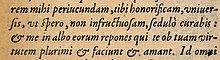 rem mihi periucundam, tibi honorificam, vniuer-
sis, vt spero, non infructuosam, sedulò curabis:
& me in alho eorum repones qui te ob tuam vir-
tutem plurimi & faciunt & amant. Id omni